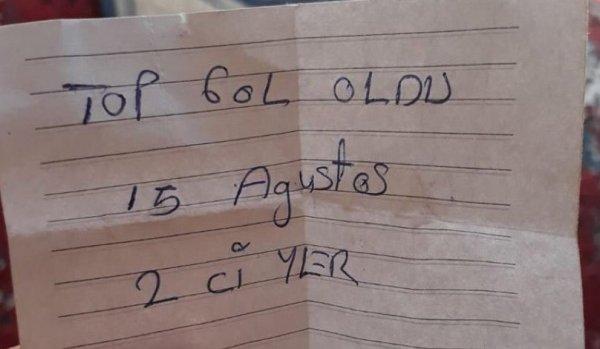 TOP GOL OLDU
15 Agustos
2 Ci YLER